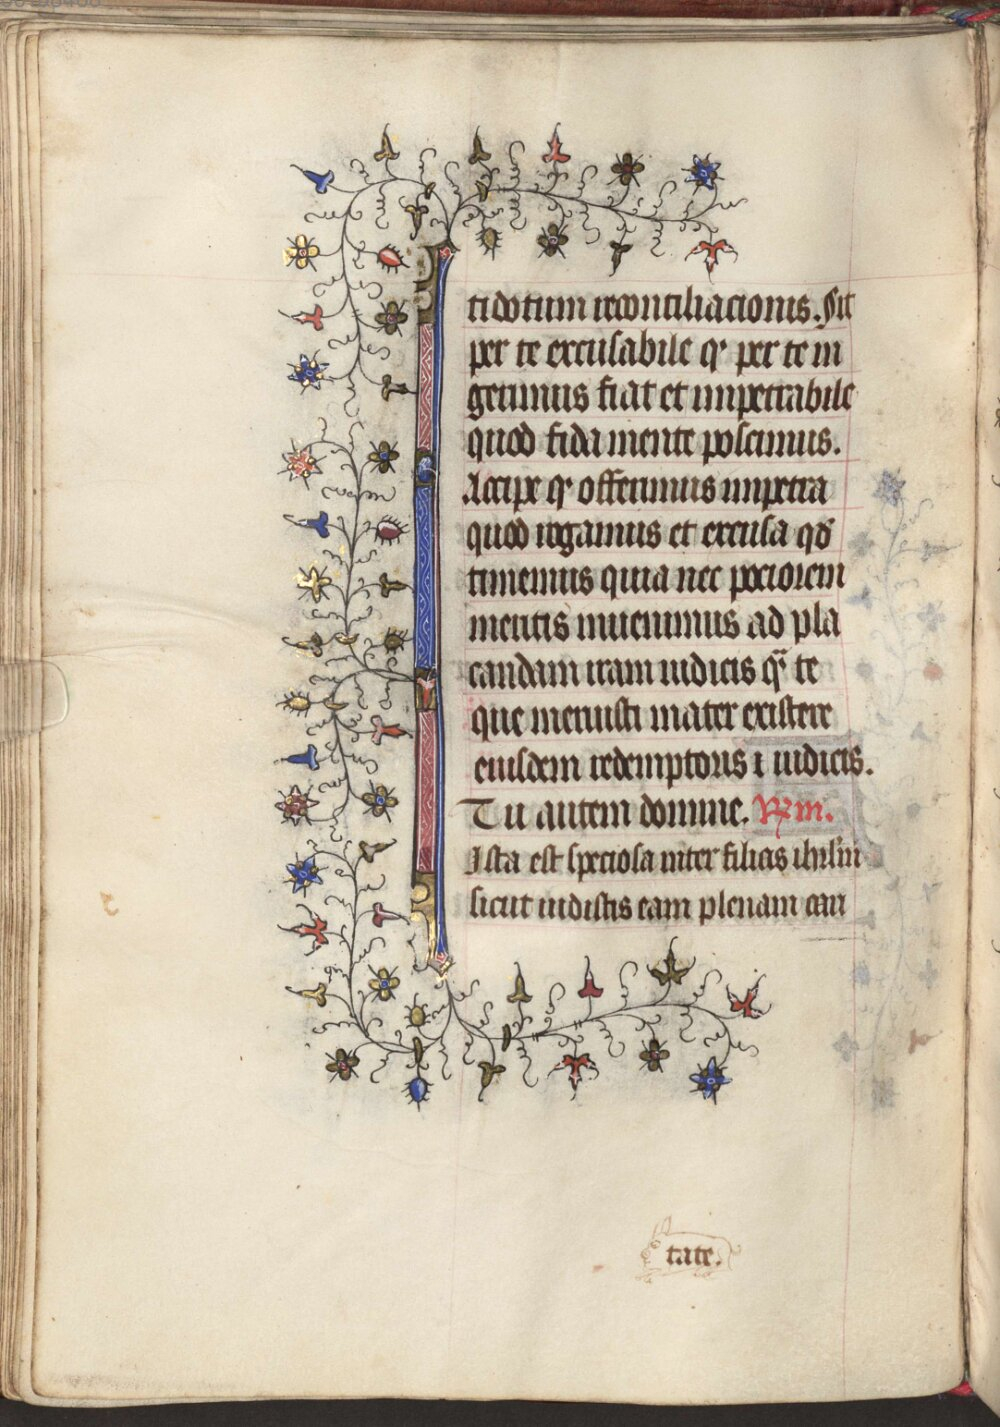 tidotum reconciliacionis. Sit
per te excusabile qͥ per te in
gerimus fiat et impetrabile
quod fida mente poscimus.
Accipe qͥ offerimus impetra
quod rogamus et excusa qd̄
timemus quia nec pociorem
meritis inuenimus ad pla
candam iram iudicis qͣ te
que meruisti mater existere
eiusdem redemptoris ⁊ iudicis.
Tu autem domine.
Ista est speciosa inter filias ihrlm̄
sicut uidistis eam plenam cari
tate.